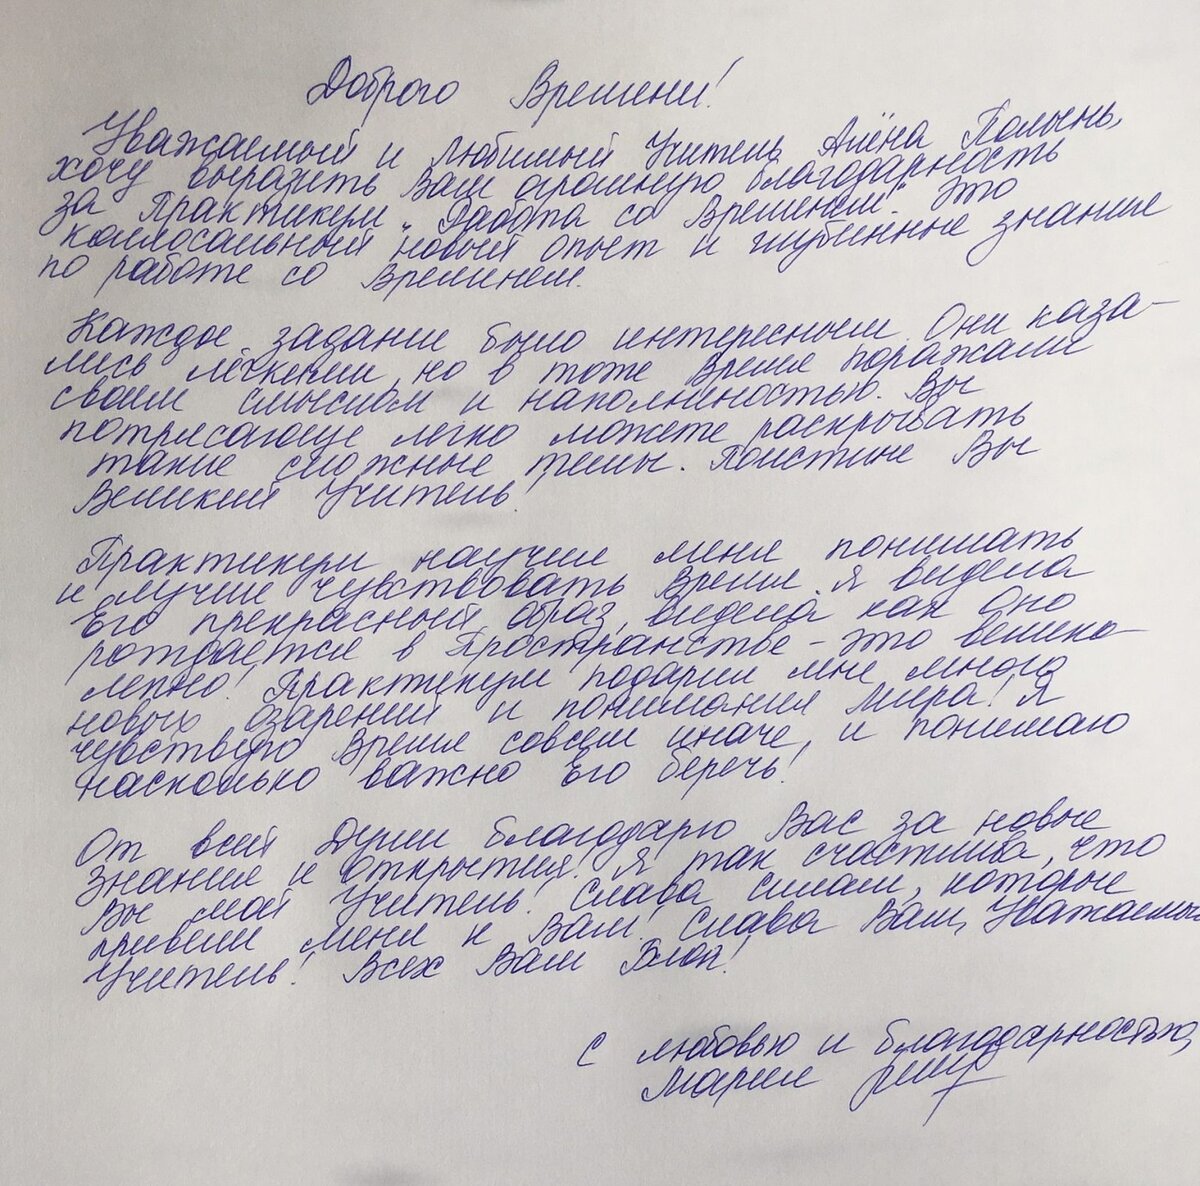 Доброго Времени!
Уважаемый и Любимый Учитель Алёна Полынь,
хочу выразить Вам огромную благодарность
за Практикум „Работа со Временем". Это
каллосальный новый опыт и глубинные знание
по работе со Временем.
Каждое задание было интересным. Они каза-
лись лёгкими, но в тоже Время поражали
своим смыслом и наполненостью. Вы
потрясающе легко можете раскрывать
такие сложные темы. Поистине Вы
Великий Учитель!
Практикум научил меня понимать
и лучше чувствовать Время. Я видела
Его прекрасный образ, видела как Оно
рождается в Пространстве - это велико-
лепно! Практикум подарил мне много
новых озарений и понимания Мира! Я
чувствую Время совсем иначе, и понимаю
насколько важно Его беречь!
От всей Души благодарю Вас за новые
Знание и Открытия! Я так счастлива, что
Вы мой Учитель! Слава силам, которые
привели меня к Вам! Слава Вам, Уважаемый
Учитель! Всех Вам Благ!
С любовью и благодарностью,
Мария